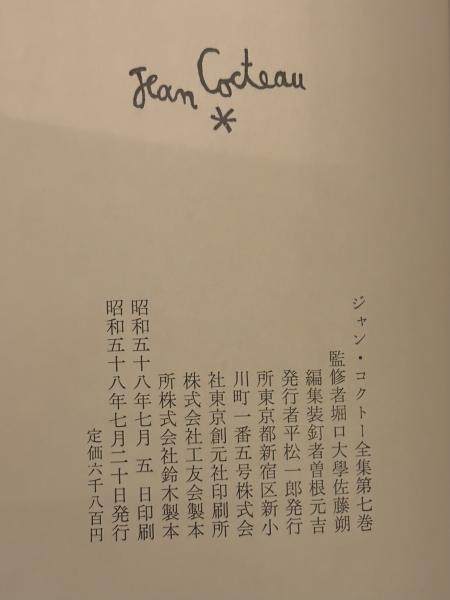 Jean Cocteau
*
ジャン・コクトー全集第七巻
監修者堀口大學佐藤朔
編集装釘者曽根元吉
発行者平松一郎発行
所東京都新宿区新小
川町一番五号株式会
社東京創元社印刷所
株式会社工友会製本
所株式会社鈴木製本
昭和五十八年七月 五 日印刷
昭和五十八年七月二十日発行
定価六千八百円